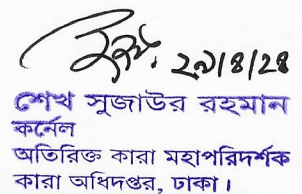 ২৯/৪/২৪
শেখ সুজাউর রহমান
কর্নেল
অতিরিক্ত কারা মহাপরিদর্শক
কারা অধিদপ্তর, ঢাকা।